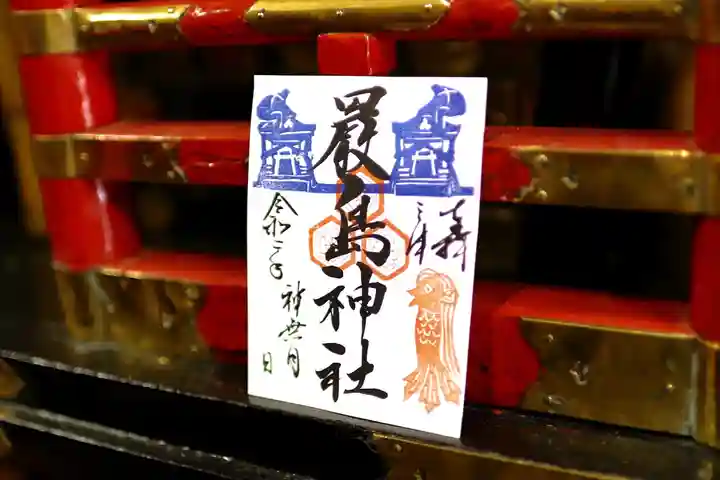 奉拝
三津
嚴島神社
令和二年
神無月
日